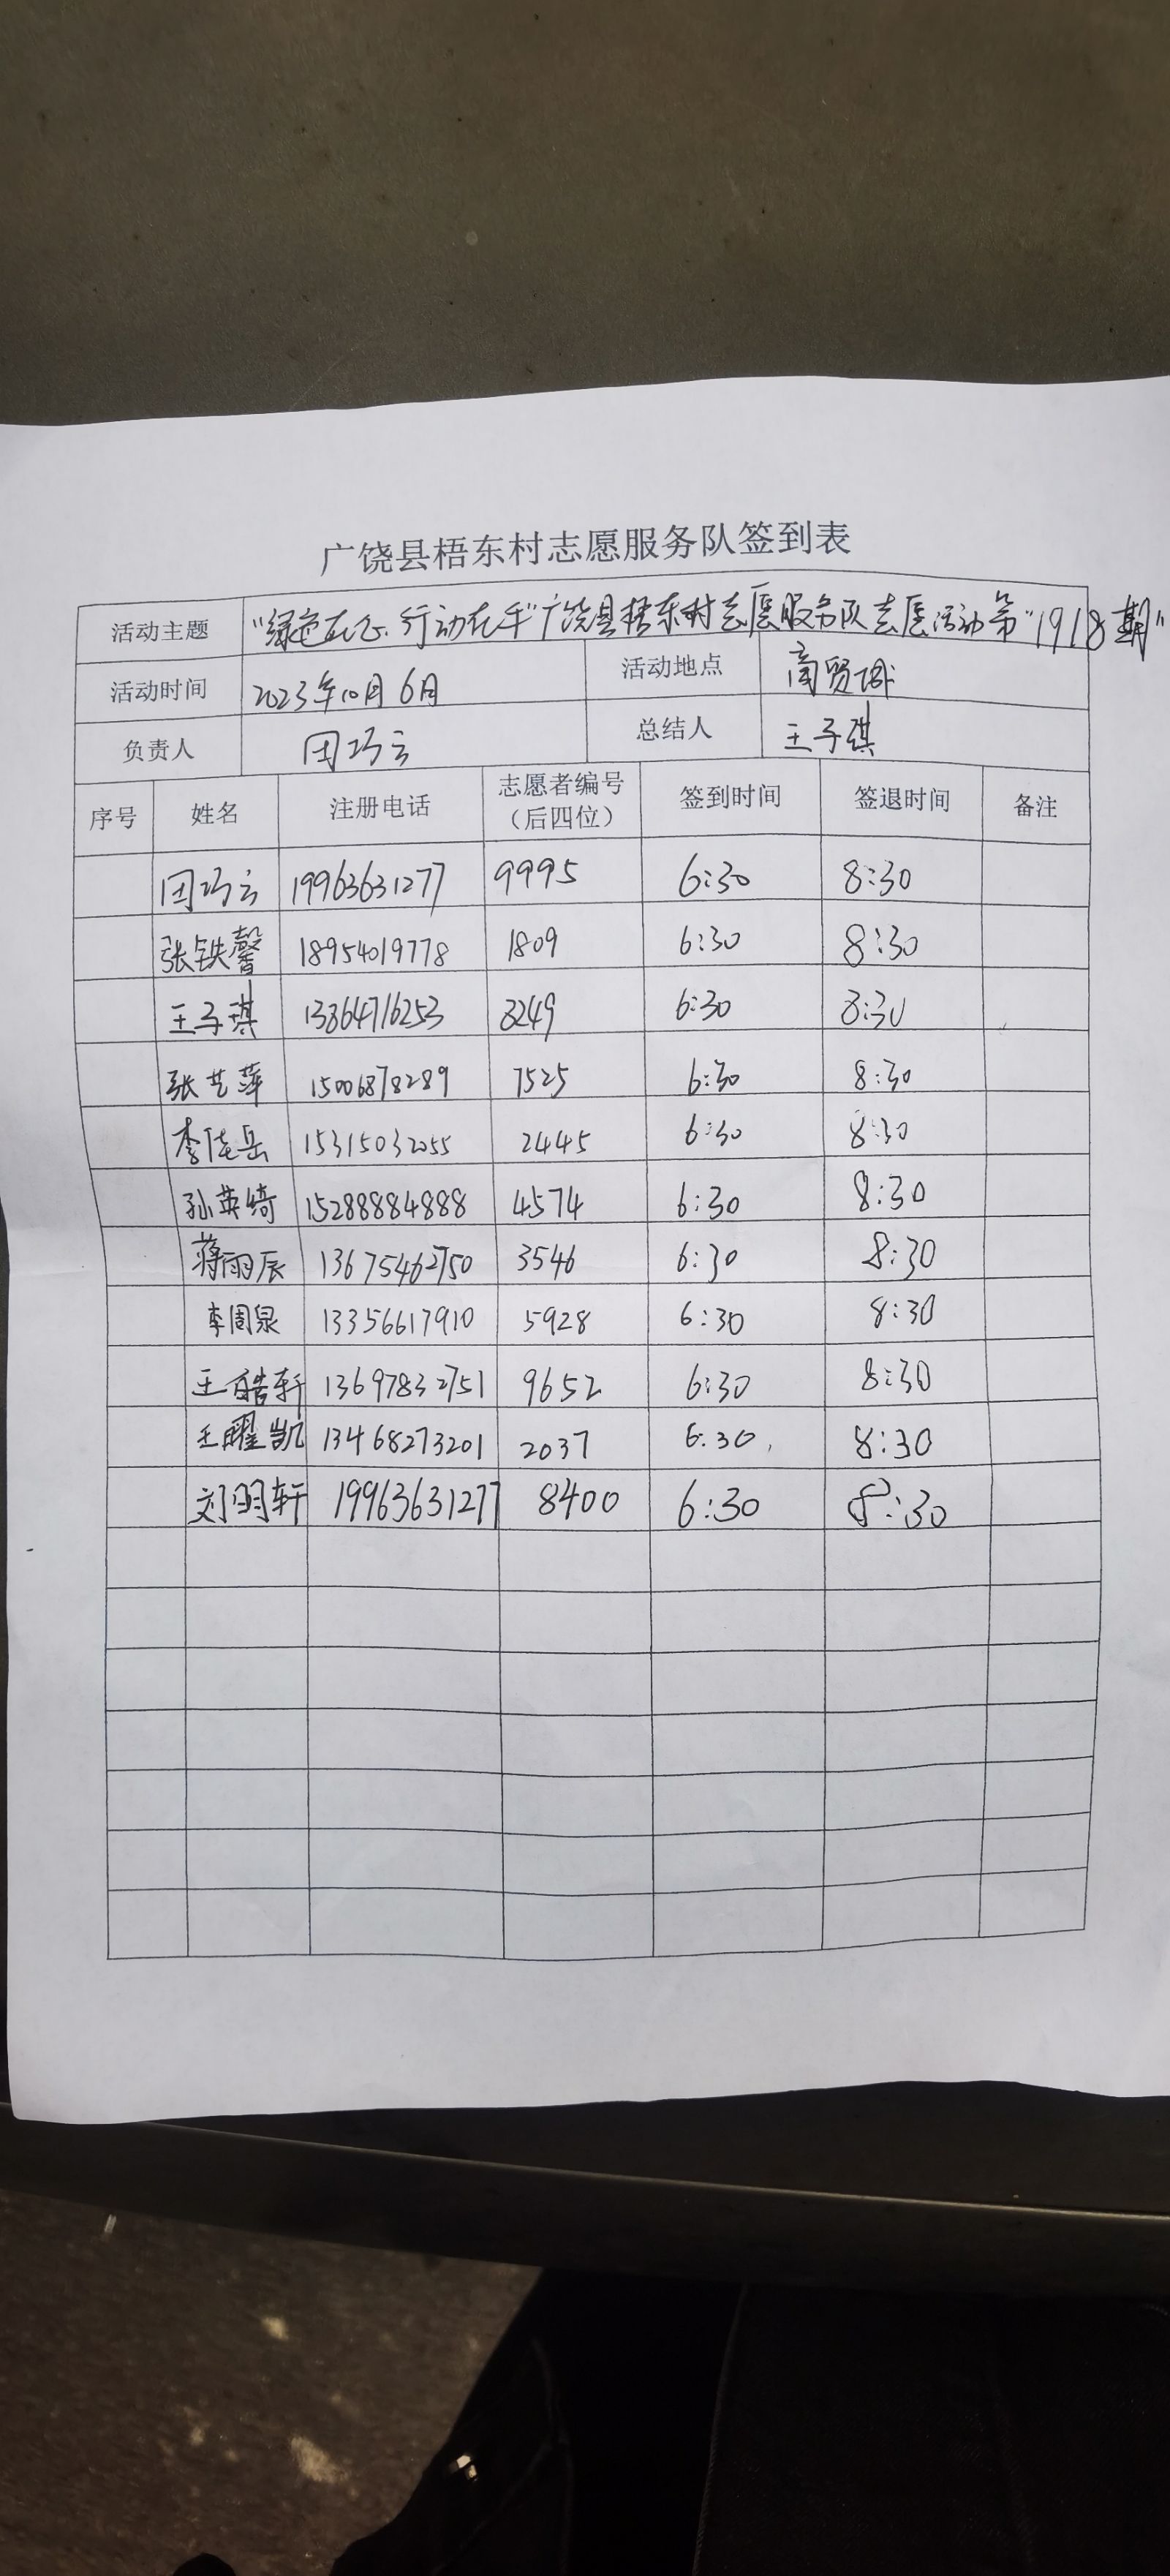 广饶县梧东村志愿服务队签到表
活动主题 "绿色在心.行动在手"广饶县梧东村志愿服务队志愿活动第"1918期"
活动时间 2023年10月6月 活动地点 商贸城
负责人 团巧云 总结人 王子琪
序号 姓名 注册电话 志愿者编号（后四位） 签到时间 签退时间 备注
团巧云 19963631277 9995 6:30 8:30
张铁馨 18954019778 1809 6:30 8:30
王子琪 13864716253 8249 6:30 8:30
张艺萍 15006878289 7525 6:30 8:30
李佳岳 15315032055 2445 6:30 8:30
孙英绮 15288884888 4574 6:30 8:30
蒋雨辰 13675462750 3546 6:30 8:30
李周泉 13356617910 5928 6:30 8:30
王皓轩 13697832751 9652 6:30 8:30
王曜凯 13468273201 2037 6:30 8:30
刘明轩 19963631277 8400 6:30 8:30